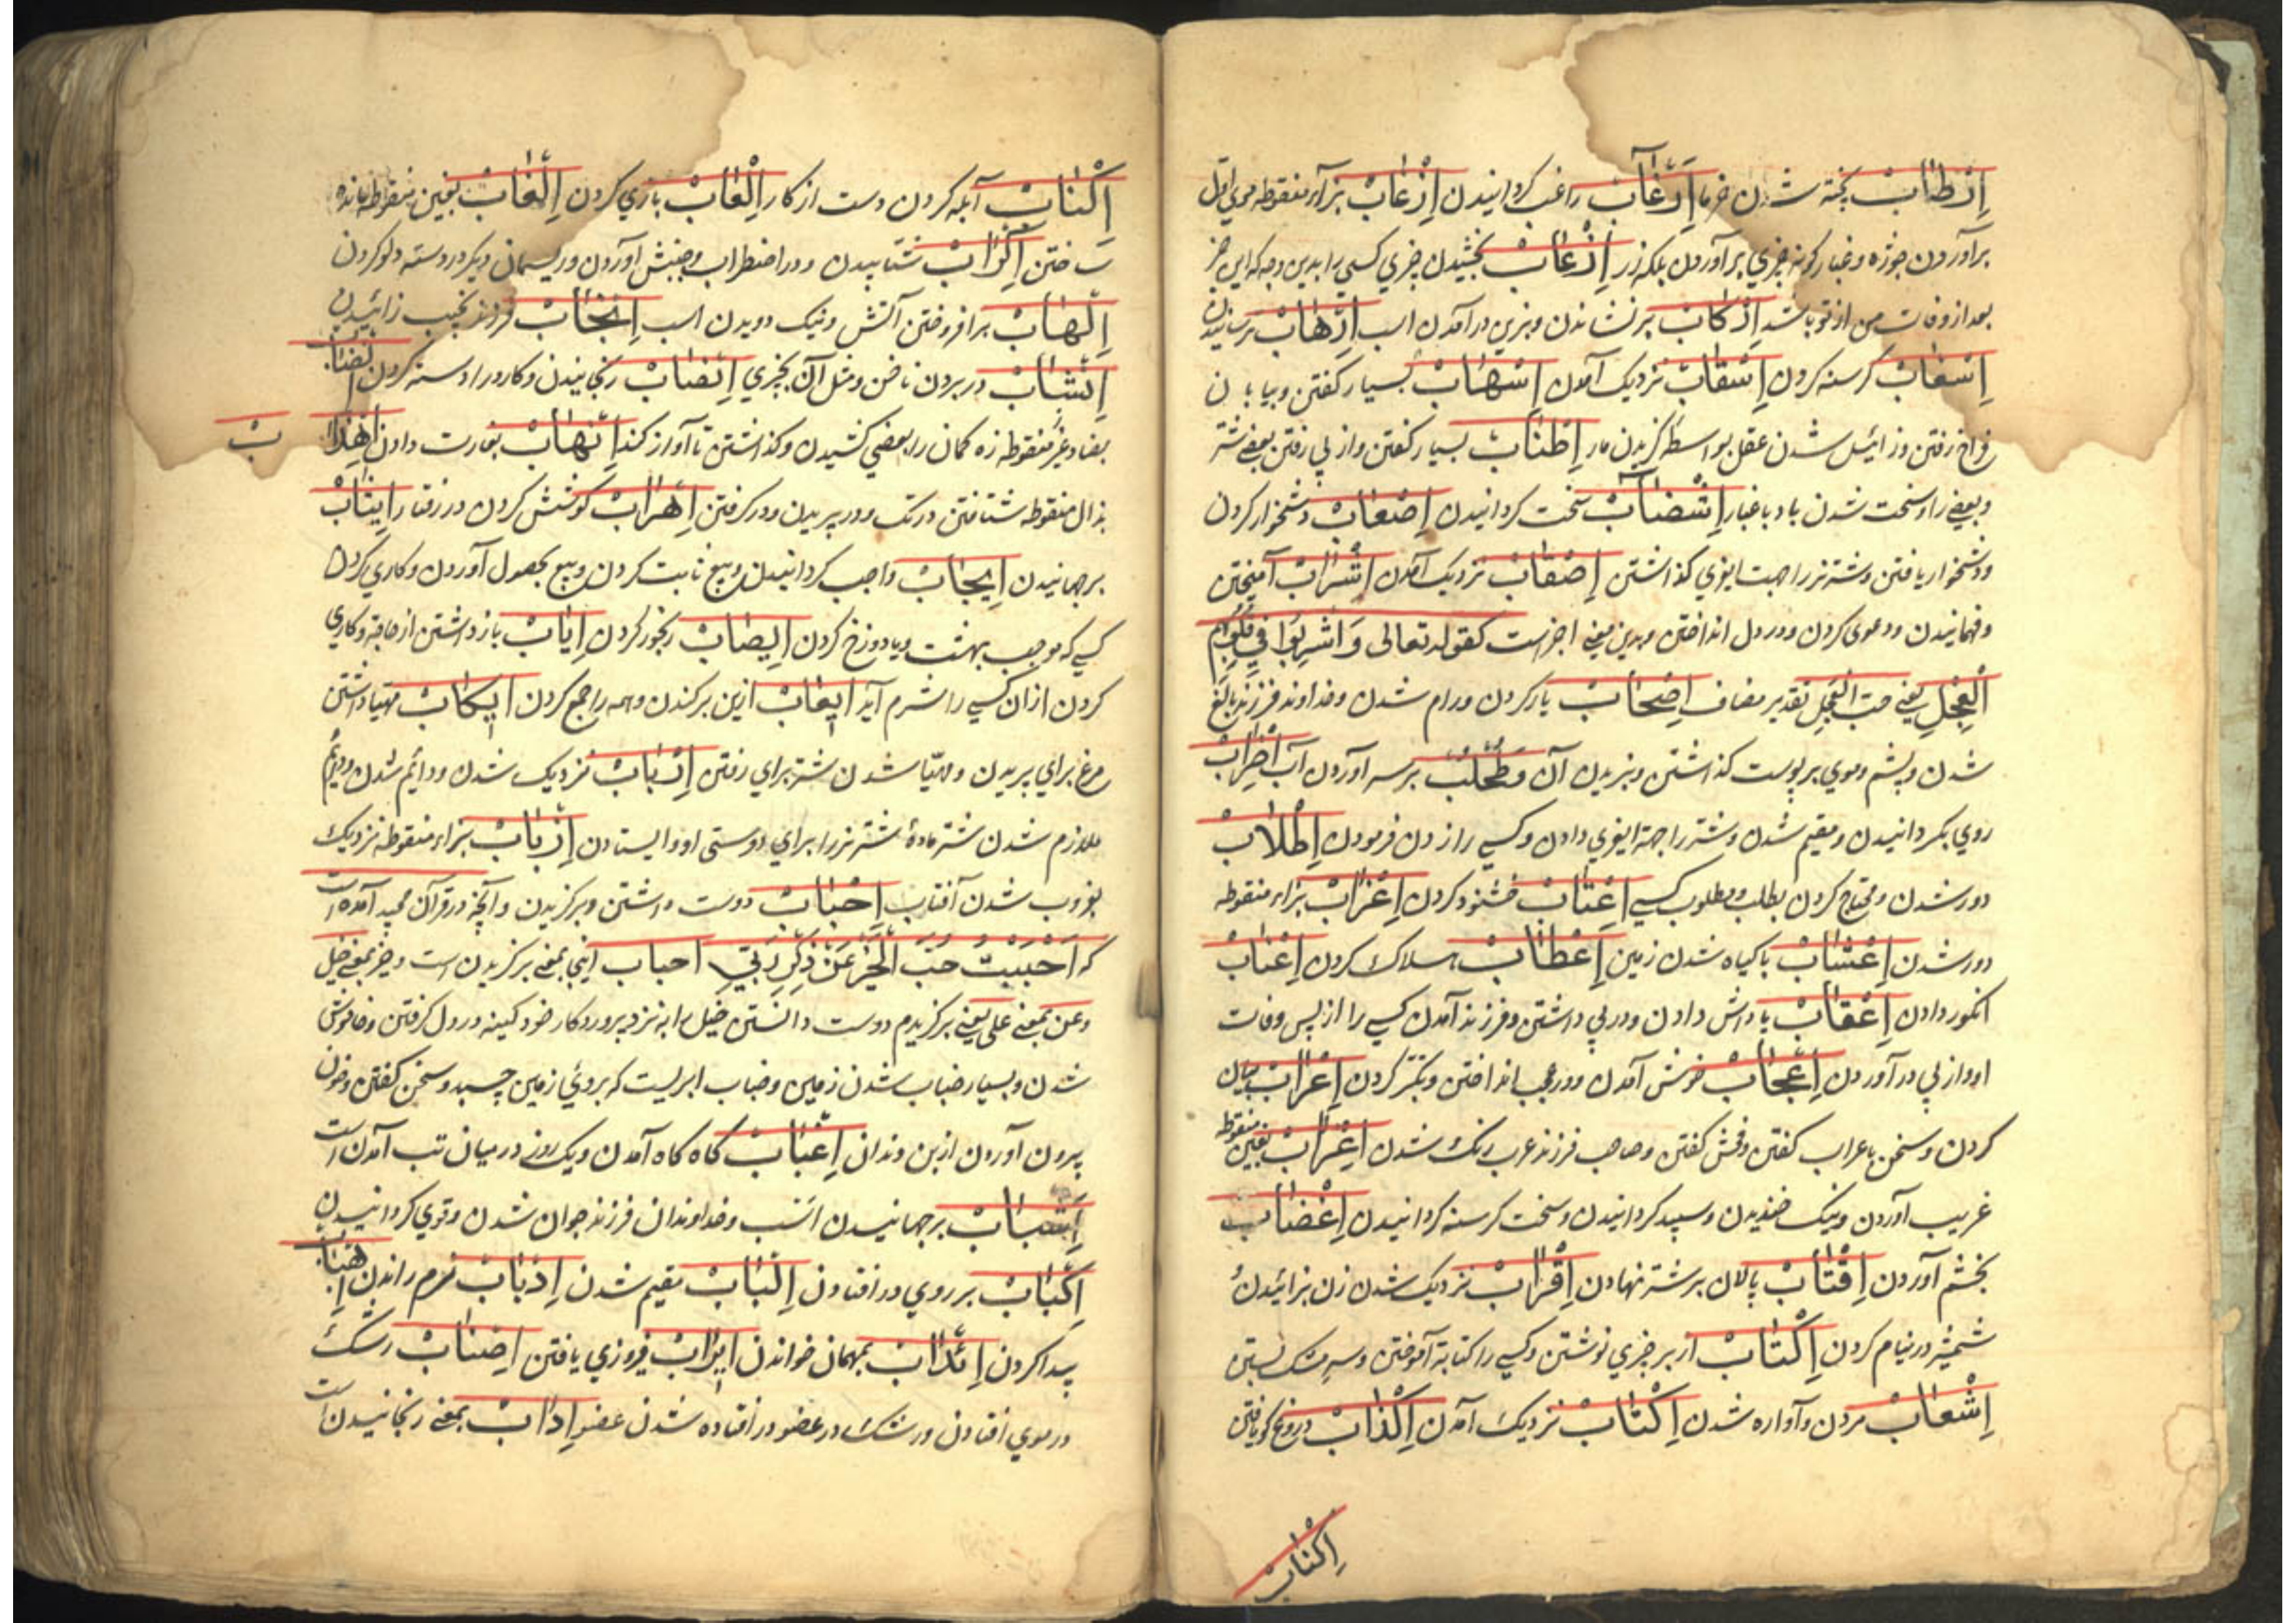 اِرْطَابْ پخته شدن خرما اِرْغَابْ راغب کردانیدن اِزْغَابْ بزاء منقوطه موی اول
برآوردن جوژه و غبار کونه چیزی برآوردن بلکه زر اِرْعَابْ بخشیدن چیزی کسی را بدین وجه که این چیز
بعد از وفات من از تو باشد اِرْکَابْ برنشاندن و بزین درآمدن اسب اِرْهَابْ ترسانیدن
اِسْغَابْ کرسنه کردن اِسْقَابْ نزدیک آمدن اِسْهَابْ بسیار کفتن و بیابان
فراخ رفتن و زائیل شدن عقل بواسطه کزیدن مار اِطْنَابْ بسیار کفتن و از پی رفتن بعضی شتر
و بعضی را و سخت شدن باد با غبار اِشْصَابْ سخت کردانیدن اِصْعَابْ دشخوار کردن
و دشخوار یافتن و شتر نر را جهت ایغوی کذاشتن اِصْقَابْ نزدیک آمدن اِشْرَابْ آمیختن
و فهمانیدن و دعوی کردن و در دل انداختن و بدین معنی اخیر است کقوله تعالی وَاُشْرِبُوا فِی قُلُوبِهِمُ
الْعِجْلَ یعنی حبّ العجل بتقدیر مضاف اِصْحَابْ یار کردن و رام شدن و خداوند فرزند بالغ
شدن و پشم و موی بر پوست کذاشتن و نبریدن آن و طُحْلُبْ برسه آوردن آب اِضْرَابْ
روی بکردانیدن و مقیم شدن و شتر را جهة ایغوی دادن و کسی را زدن فرمودن اِطْلَابْ
دور شدن و محتاج کردن بطلب و مطلوب کسی اِعْتَابْ خشنود کردن اِعْزَابْ بزاء منقوطه
دور شدن اِعْشَابْ با کیاه شدن زمین اِعْطَابْ هلاک کردن اِعْنَابْ
انکور دادن اِعْقَابْ پاداش دادن و در پی داشتن و فرزند آمدن کسی را از پس وفات
او و از پی درآوردن اِعْجَابْ خوش آمدن و در عجب انداختن و تکبّر کردن اِعْرَابْ بیان
کردن و سخن باعراب کفتن و فحش کفتن و صاحب فرزند عرب رنک شدن اِغْرَابْ بغین منقوطه
غریب آوردن و نیک خندیدن و سپید کردانیدن و سخت کرسنه کردانیدن اِغْضَابْ
بخشم آوردن اِقْتَابْ پالان بر شتر نهادن اِقْرَابْ نزدیک شدن زن بزائیدن و
شمشیر در نیام کردن اِکْتَابْ از بر چیزی نوشتن و کسی را کتابة آموختن و سر مشک بستن
اِشْعَابْ مردن و آواره شدن اِکْثَابْ نزدیک آمدن اِکْذَابْ دروغ کو یافتن
اِکْنَابْ
اِکْنَابْ آبله کردن دست از کار اِلْعَابْ بازی کردن اِلْغَابْ بغین منقوطه مانده
ساختن اِکْرَابْ شتابیدن و در اضطراب و جنبش آوردن و ریسمان دیکر در دسته دلو کردن
اِلْهَابْ برافروختن آتش و نیک دویدن اسب اِنْجَابْ فرزند نجیب زائیدن
اِنْشَابْ در بردن ناخن و مثل آن بچیزی اِنْصَابْ رنجانیدن و کارد را دسته کردن اِنْضَابْ
بضاد غیر منقوطه زه کمان را بعضی کشیدن و کذاشتن تا آواز کند اِنْهَابْ بغارت دادن اِهْذَابْ
بذال منقوطه شتافتن در تک و در پریدن و در کرفتن اِهْرَابْ کوشش کردن در رفتار اِیثَابْ
برجهانیدن اِیجَابْ واجب کردانیدن و بیع ثابت کردن و بیع بحصول آوردن و کاری کردن
کسی که موجب بهشت و یا دوزخ کردن اِیصَابْ رنجور کردن اِیَابْ باز داشتن از حاجة و کاری
کردن از آن کسی را شرم آید اِیعَابْ از بن برکندن و همه را جمع کردن اِیکَابْ مهیا داشتن
مرغ برای پریدن و مهیّا شدن شتر برای رفتن اِرْبَابْ نزدیک شدن و دائم شدن و دایم
ملازم شدن شتر مادهٔ شتر نر را برای دوستی او و ایستادن اِزْبَابْ بزاء منقوطه نزدیک
بغروب شدن آفتاب اِحْبَابْ دوست داشتن و برکزیدن و آنچه در قرآن مجید آمده است
که اَحْبَبْتُ حُبَّ الْخَیْرِ عَنْ ذِکْرِ رَبِّی احباب اینجا بمعنی برکزیدن است و خیر بمعنی خیل
و عن بمعنی علی یعنی برکزیدم دوست دانستن خیل را به نزد پروردکار خود کینه در دل کرفتن و خاموش
شدن و بسیار ضباب شدن زمین و ضباب ابریست که بر روی زمین چسبد و سخن کفتن و خون
بیرون آوردن از بن دندان اِغْبَابْ کاه کاه آمدن و یک روز در میان تب آمدن است
اِشْبَابْ برجهانیدن اسب و خداوندان فرزند جوان شدن و قوی کردانیدن
اِکْبَابْ بر روی درافتادن اِلْبَابْ مقیم شدن اِدْبَابْ نرم راندن اِهْبَابْ
پیدا کردن اِئْدَابْ بمهمان خواندن اِیرَابْ فیروزی یافتن اِصْئَابْ رشک
در موی افتادن و رشک در عضو درافتاده شدن عضو اِدْآبْ بمعنی رنجانیدن است